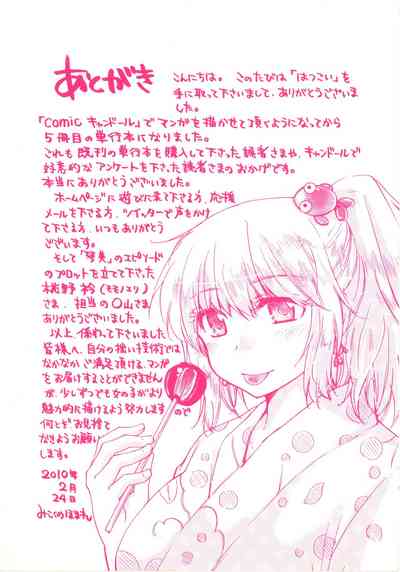 あとがき
こんにちは。このたびは「はつこい」を
手に取って下さいまして、ありがとうございま
した。
「Comic キャンドール」でマンガを描かせて頂くようになってから
5冊目の単行本になりました。
これも既刊の単行本を購入して下さった読者さまや、キャンドールで
好意的なアンケートを下さった読者さまのおかげです。
本当にありがとうございました。
ホームページに遊びに来て下さる方、応援
メールを下さる方、ツイッターで声をかけ
て下さる方、いつもありがとう
ございます。
そして「琴美」のエピソード
のプロットを立てて下さった
桃野衿(モモノエリ)
さま、担当の〇山さま
ありがとうございました。
以上係わって下さいました
皆様へ、自分の拙い技術では
なかなかご満足頂ける、マンガ
をお届けすることができません
が、少しずつでも女の子がより
魅力的に描けるよう努力しますので
何とぞお見捨て
なきようお願い
します。
2010年
2月
24日
みこくのほまれ